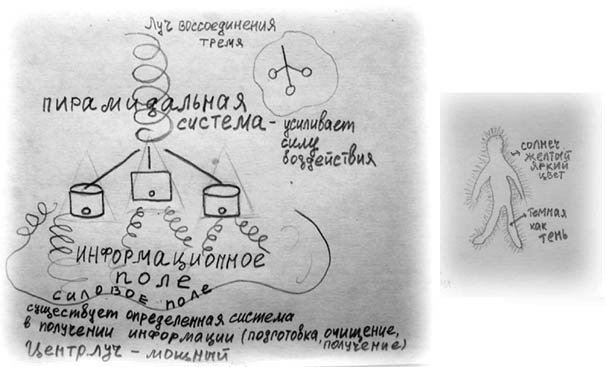 ЛУЧ ВОССОЕДИНЕНИЯ
ТРЕМЯ
ПИРАМИДАЛЬНАЯ
СИСТЕМА - УСИЛИВАЕТ
СИЛУ
ВОЗДЕЙСТВИЯ
ИНФОРМАЦИОННОЕ
ПОЛЕ
СИЛОВОЕ ПОЛЕ
СУЩЕСТВУЕТ ОПРЕДЕЛЕННАЯ СИСТЕМА
В ПОЛУЧЕНИИ ИНФОРМАЦИИ (ПОДГОТОВКА, ОЧИЩЕНИЕ,
ПОЛУЧЕНИЕ)
ЦЕНТР. ЛУЧ - МОЩНЫЙ
СОЛНЕЧ
ЖЕЛТЫЙ
ЯРКИЙ
ЦВЕТ
ТЕМНАЯ
КАК
ТЕНЬ